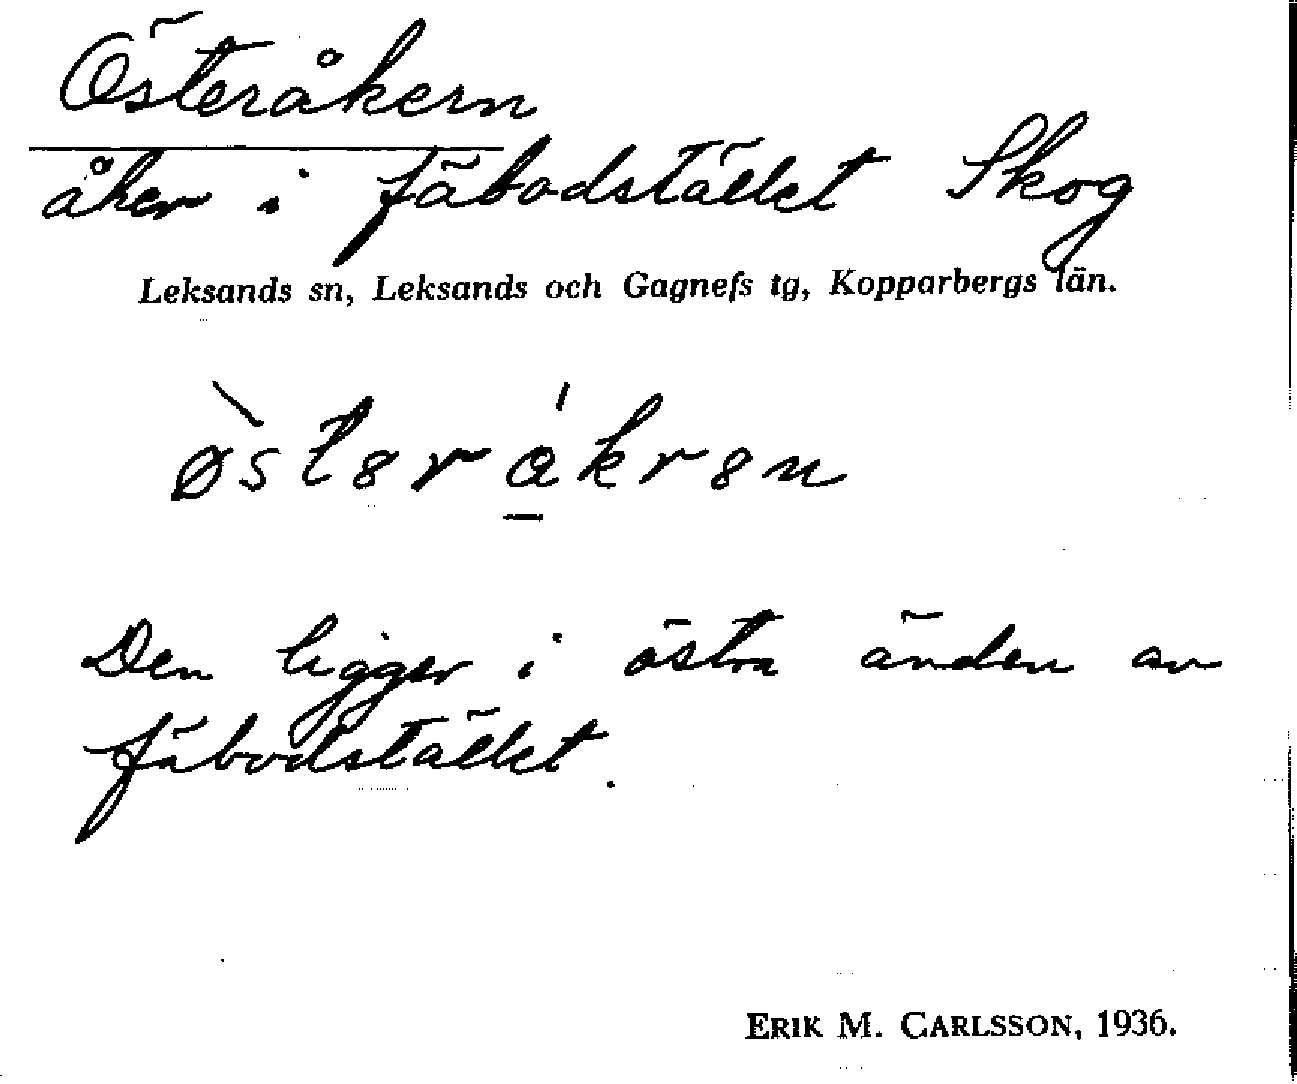 Österåkern
åker i fäbodstället Skog
Leksands sn, Leksands och Gagnefs tg, Kopparbergs län.
ø̀stərá̱krən
Den ligger i östra änden av
fäbodstället.
ERIK M. CARLSSON, 1936.